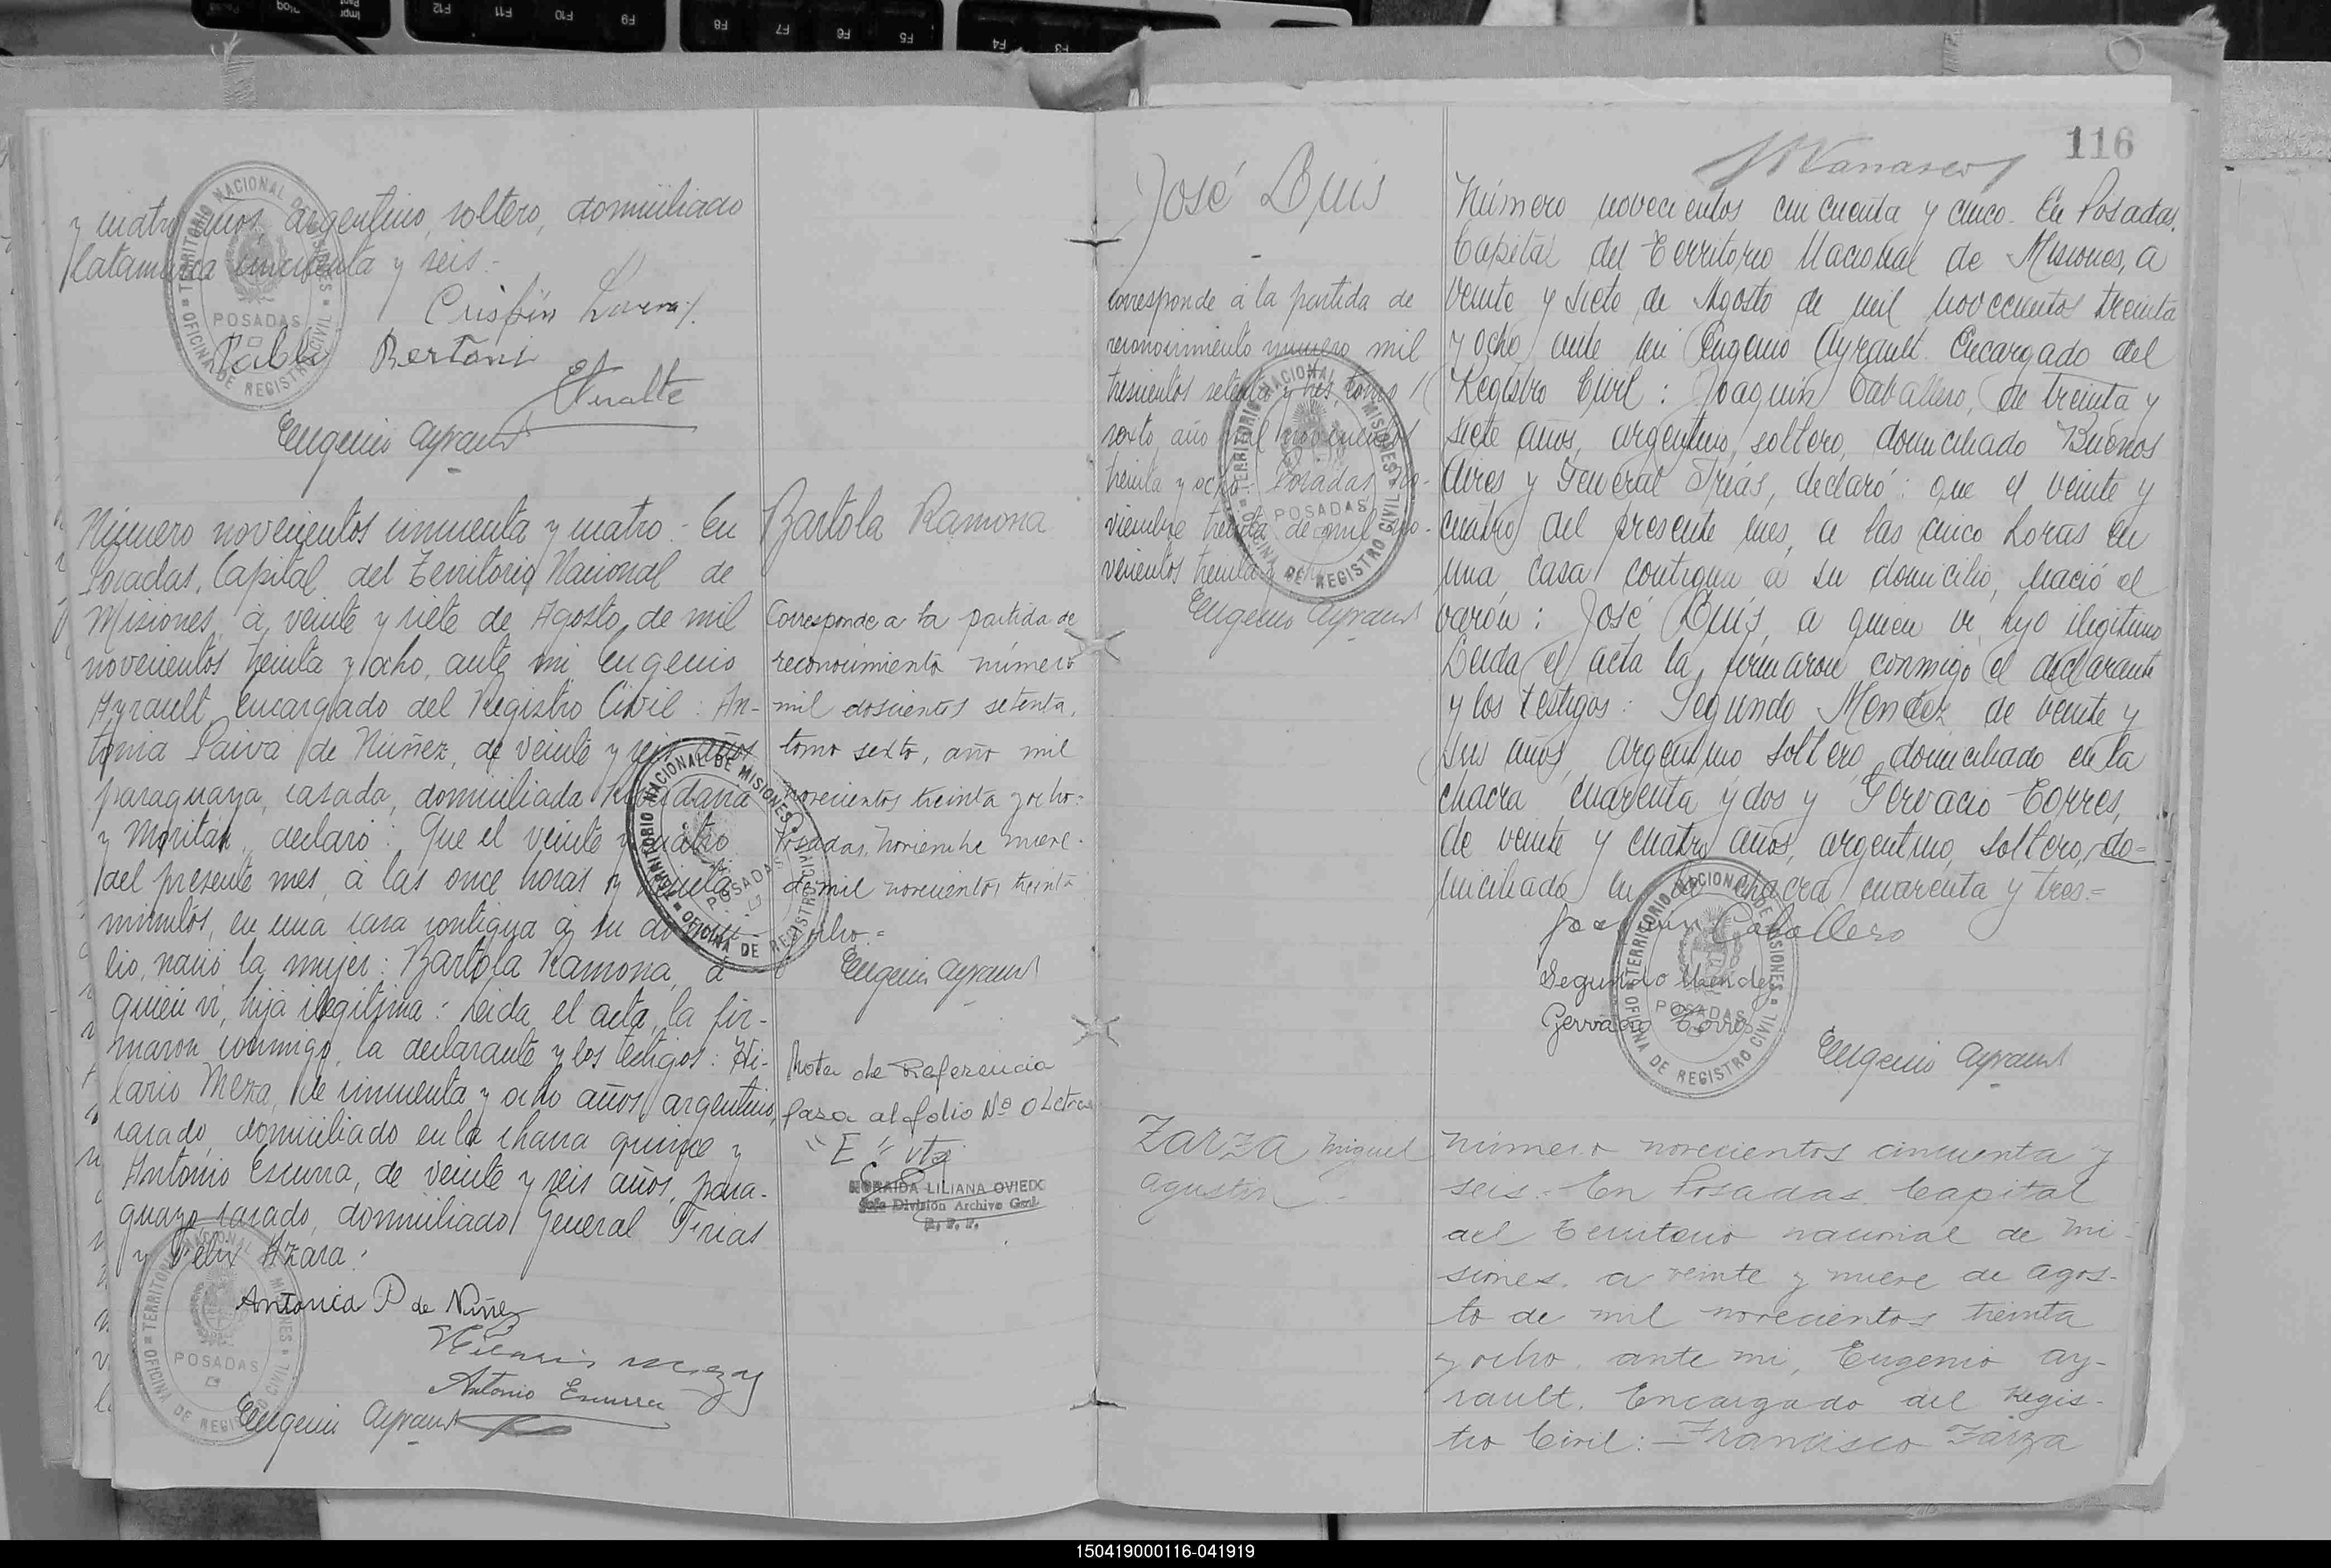 y cuatro años, argentino, soltero, domiciliado
Catamarca cincuenta y seis.-
Pablo Bertoni
Eugenio Ayrault
TERRITORIO NACIONAL DE MISIONES
OFICINA DE REGISTRO CIVIL
POSADAS
Número novecientos cincuenta y cuatro.- En
Posadas, Capital del Territorio Nacional de
Misiones, á veinte y siete de Agosto de mil
novecientos treinta y ocho, ante mi Eugenio
Ayrault, Encargado del Registro Civil: An-
tonia Paiva de Núñez, de veinte y seis años
paraguaya, casada, domiciliada Rivadavia
y Moritán, declaró: Que el veinte y cuatro
del presente mes, á las once horas y treinta
minutos, en una casa contigua á su domici-
lio, nació la mujer: Bartola Ramona, á
quién vi, hija ilegitima: Leida el acta, la fir-
maron conmigo, la declarante y los testigos: Hi-
lario Meza, de cincuenta y ocho años, argentino,
casado, domiciliado en la chacra quince y
Antonio Escurra, de veinte y seis años, para-
guayo, casado, domiciliado General Frias
y Félix Azara:
Antonia P de Nuñez
Hilario Meza
Antonio Escurra
Eugenio Ayrault
TERRITORIO NACIONAL DE MISIONES
OFICINA DE REGISTRO CIVIL
POSADAS
Bartola Ramona
Corresponde a la partida de
reconocimiento número
mil doscientos setenta,
tomo sexto, año mil
novecientos treinta y ocho:
Posadas, Noviembre nueve
de mil novecientos treinta
y ocho.=
Eugenio Ayrault
TERRITORIO NACIONAL DE MISIONES
OFICINA DE REGISTRO CIVIL
POSADAS
Nota de Referencia
Pasa al folio Nº 0 Letra
"E" vta
LILIANA OVIEDO
Jefe División Archivo Gral.
José Luis
Corresponde á la partida de
reconocimiento número mil
trescientos setenta y tres, tomo
sexto, año mil novecientos
treinta y ocho: Posadas, No-
viembre treinta de mil no-
vecientos treinta y
Eugenio Ayrault
TERRITORIO NACIONAL DE MISIONES
OFICINA DE REGISTRO CIVIL
POSADAS
116
Número novecientos cincuenta y cinco. En Posadas,
Capital del Territorio Nacional de Misiones, a
veinte y siete de Agosto de mil novecientos treinta
y ocho, ante mi Eugenio Ayrault Encargado del
Registro Civil: Joaquín Caballero, de treinta y
siete años, argentino, soltero, domiciliado Buenos
Aires y General Frías, declaró: que el veinte y
cuatro del presente mes, a las cinco horas en
una casa contigua á su domicilio, nació el
varón: José Luís, a quien vi, hijo ilegitimo
Leida el acta la firmaron conmigo el declarante
y los testigos: Segundo Mendez, de veinte y
seis años, argentino soltero, domiciliado en la
chacra cuarenta y dos y Gervacio Torres,
de veinte y cuatro años, argentino, soltero, do=
miciliado en la chacra cuarenta y tres.=
Joaquin Caballero
Segundo Mendez
Gervacio Torres
Eugenio Ayrault
TERRITORIO NACIONAL DE MISIONES
OFICINA DE REGISTRO CIVIL
POSADAS
Zarza Miguel
Agustin
Número novecientos cincuenta y
seis.- En Posadas Capital
del Territorio nacional de Mi-
siones, a veinte y nueve de Agos-
to de mil novecientos treinta
y ocho, ante mi, Eugenio Ay-
rault, Encargado del Regis-
tro Civil: Francisco Zarza
150419000116-041919